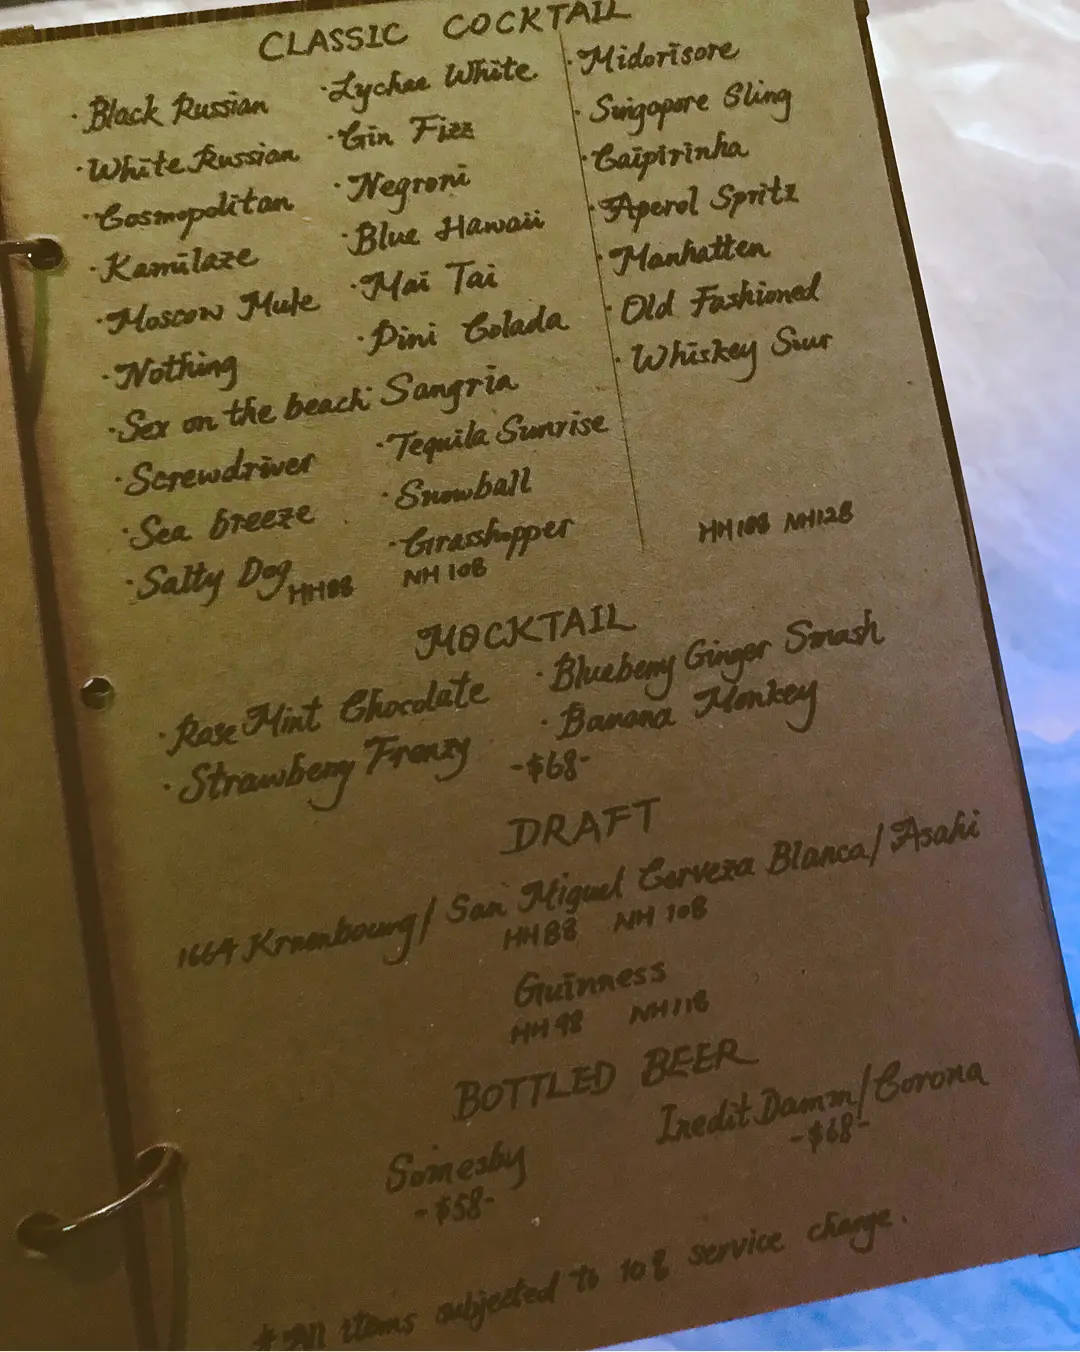 CLASSIC COCKTAIL
· Black Russian
· White Russian
· Cosmopolitan
· Kamikaze
· Moscow Mule
· Nothing
· Sex on the beach
· Screwdriver
· Sea breeze
· Salty Dog
· Lychee White
· Gin Fizz
· Negroni
· Blue Hawaii
· Mai Tai
· Pini Colada
· Sangria
· Tequila Sunrise
· Snowball
· Grasshopper
HH88 NH 108
· Midorisore
· Singopore Sling
· Caipirinha
· Aperol Spritz
· Manhatten
· Old Fashioned
· Whiskey Sour
HH108 NH128
MOCKTAIL
· Rose Mint Chocolate
· Strawberry Frenzy
· Blueberry Ginger Smash
· Banana Monkey
-$68-
DRAFT
1664 Kronenbourg/ San Miguel Cerveza Blanca/ Asahi
HH88 NH 108
Guinness
HH 98 NH118
BOTTLED BEER
Somesby
-$58-
Inedit Damm/Corona
-$68-
* All items subjected to 10% service charge.